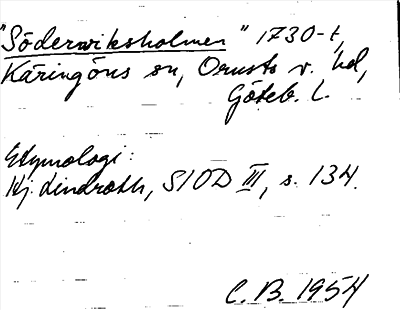 "Söderwiksholmen" 1730-t,
Käringöns sn, Orusts v. hd,
Göteb. L.
Etymologi:
Hj. Lindroth, SIOD III, s. 134.
C. B. 1954